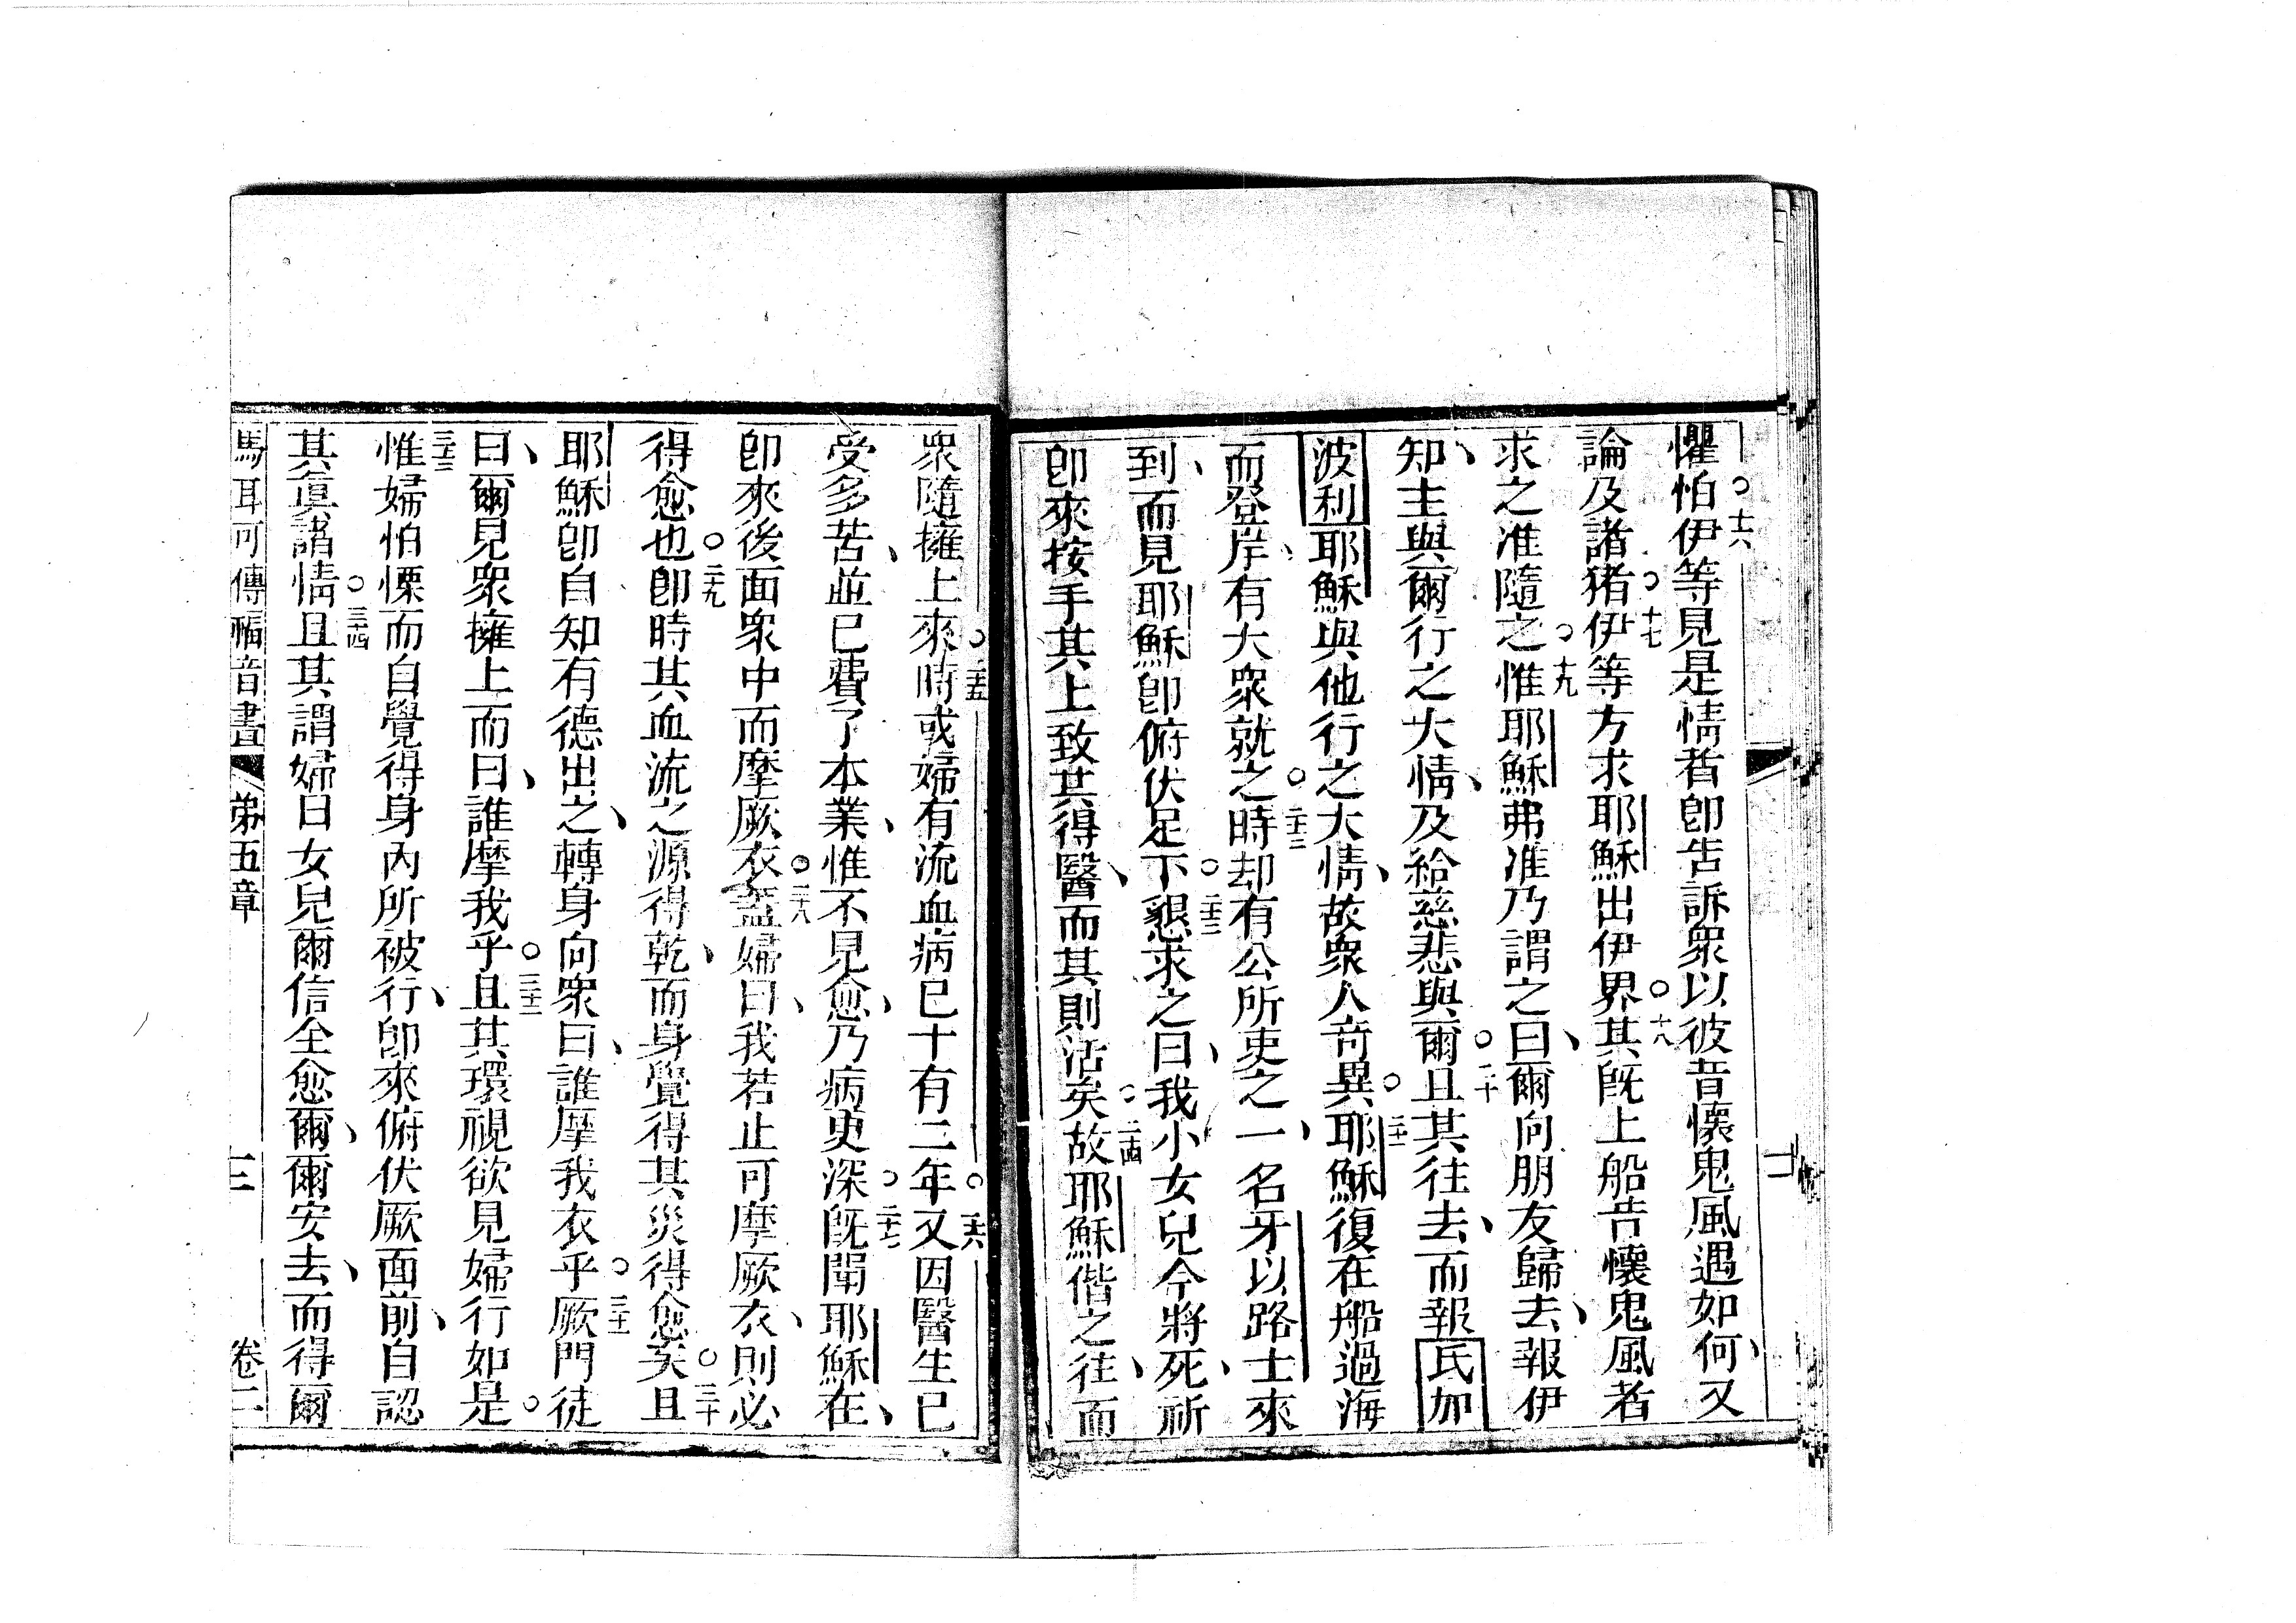 懼怕○十六伊等見是情者卽告訴衆以彼昔懷鬼風遇如何、又
論及諸猪○十七伊等方求耶穌出伊界○十八其旣上船告懷鬼風者
求之准隨之○十九惟耶穌弗准乃謂之曰、爾向朋友歸去、報伊
知、主與爾行之大情、及給慈悲與爾○二十且其往去、而報氐加
波利耶穌與他行之大情、故衆人奇異○二十一耶穌復在船過海
而登岸、有大衆就之○二十二時却有公所吏之一、名牙以路士來
到、而見耶穌卽俯伏足下○二十三懇求之曰、我小女兒今將死、祈
卽來按手其上致其得醫、而其則活矣○二十四故耶穌偕之往、而
衆隨擁上來○二十五時或婦有流血病已十有二年○二十六又因醫生已
受多苦、並已費了本業、惟不見愈、乃病更深○二十七旣聞耶穌在、
卽來後面衆中而摩厥衣○二十八蓋婦曰、我若止可摩厥衣、則必
得愈也○二十九卽時其血流之源得乾、而身覺得其災得愈矣○三十且
耶穌卽自知有德出之、轉身向衆曰、誰摩我衣乎○三十一厥門徒
曰、爾見衆擁上而曰、誰摩我乎○三十二且其環視欲見婦行如是○
三十三惟婦怕慄而自覺得身內所被行、卽來俯伏厥面前、自認
其眞諸情○三十四且其謂婦曰女兒爾信全愈爾、爾安去、而得爾
馬耳可傳福音書 第五章 十三 卷二